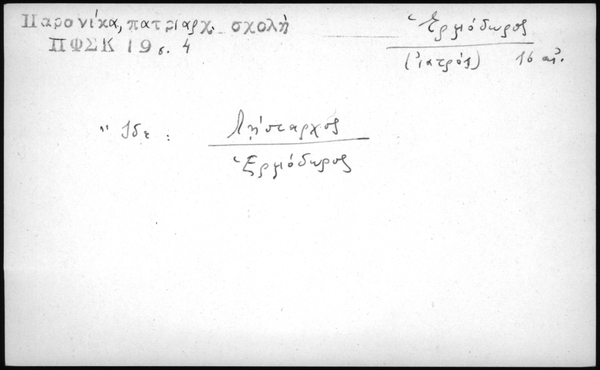 Παρονίκα, πατριαρχ. σχολή
ΠΦΣΚ 19 σ. 4
Ἑρμόδωρος
(ἰατρός) 16 αἰ.
Ἴδε :
Λήσταρχος
Ἑρμόδωρος